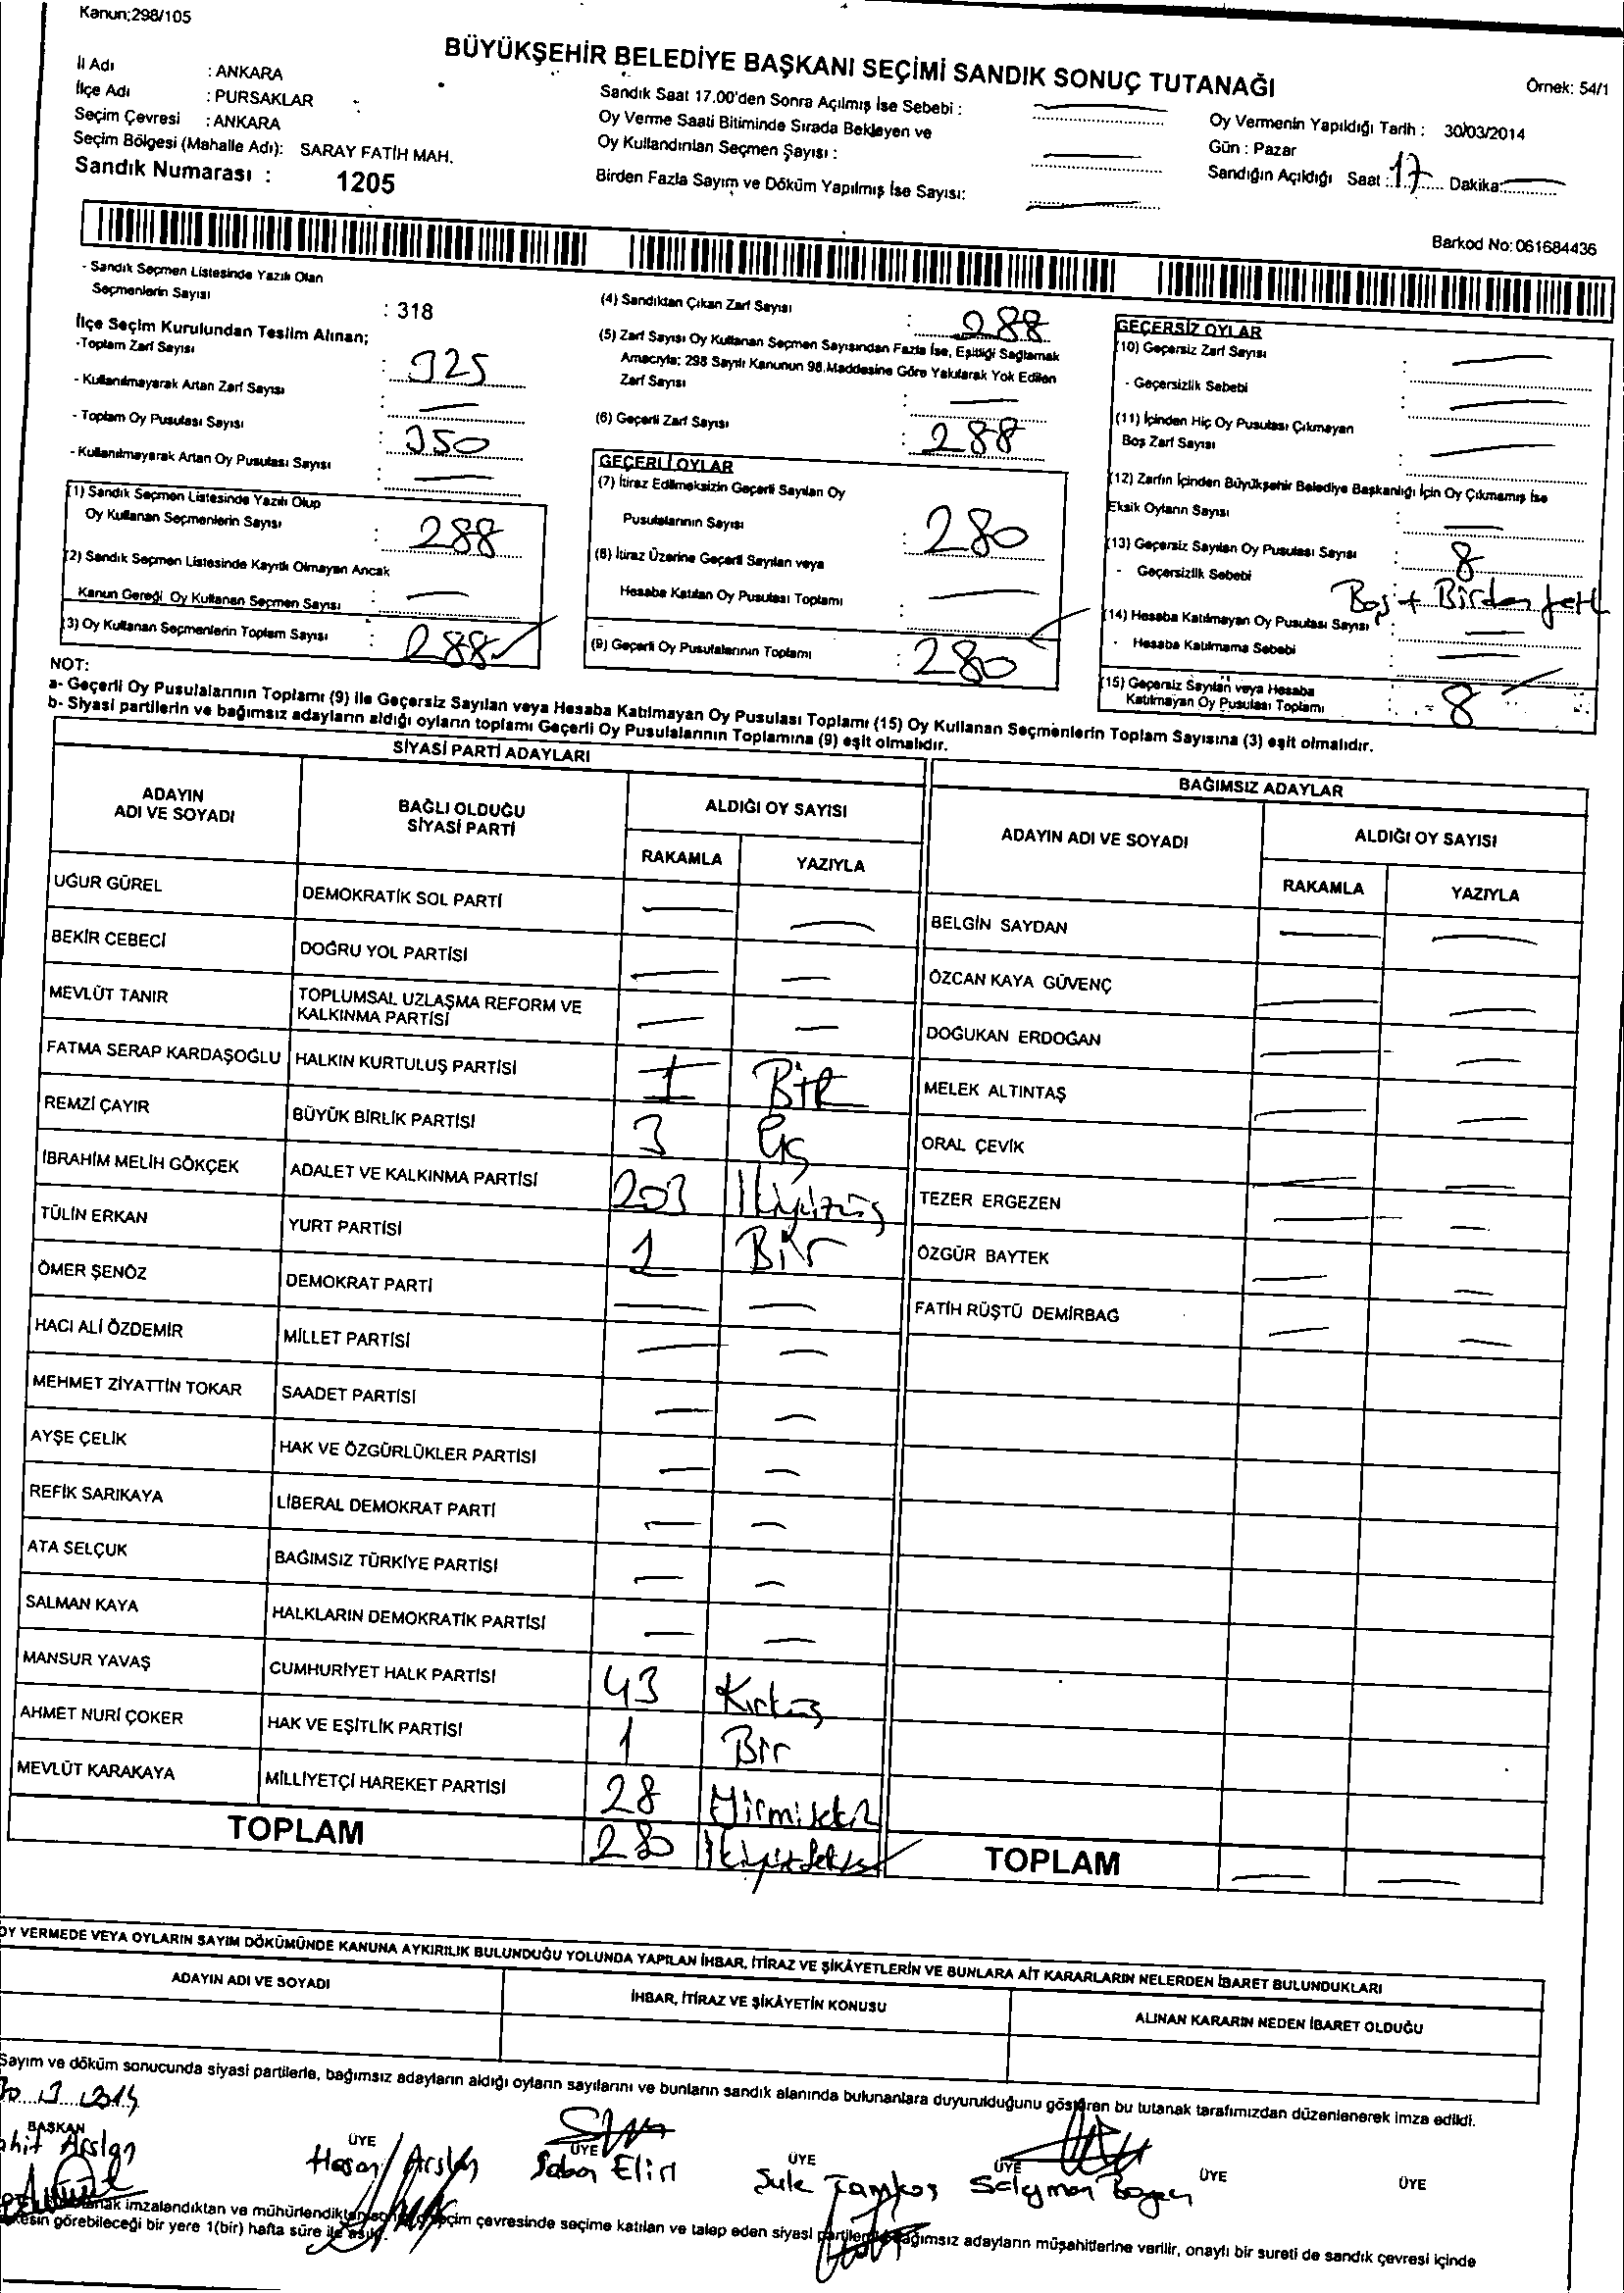 Kanun;298/105
BÜYÜKŞEHİR BELEDİYE BAŞKANI SEÇİMİ SANDIK SONUÇ TUTANAĞI
Örnek: 54/1
İl Adı : ANKARA
İlçe Adı : PURSAKLAR
Seçim Çevresi : ANKARA
Seçim Bölgesi (Mahalle Adı): SARAY FATİH MAH.
Sandık Numarası : 1205
Sandık Saat 17.00'den Sonra Açılmış İse Sebebi :
Oy Verme Saati Bitiminde Sırada Bekleyen ve
Oy Kullandırılan Seçmen Sayısı :
Birden Fazla Sayım ve Döküm Yapılmış İse Sayısı:
Oy Vermenin Yapıldığı Tarih : 30/03/2014
Gün : Pazar
Sandığın Açıldığı Saat : 17 Dakika:
Barkod No: 061684436
- Sandık Seçmen Listesinde Yazılı Olan
Seçmenlerin Sayısı : 318
İlçe Seçim Kurulundan Teslim Alınan;
-Toplam Zarf Sayısı : 325
- Kullanılmayarak Artan Zarf Sayısı : —
- Toplam Oy Pusulası Sayısı : 350
- Kullanılmayarak Artan Oy Pusulası Sayısı : —
(1) Sandık Seçmen Listesinde Yazılı Olup
Oy Kullanan Seçmenlerin Sayısı : 288
(2) Sandık Seçmen Listesinde Kayıtlı Olmayan Ancak
Kanun Gereği Oy Kullanan Seçmen Sayısı : —
(3) Oy Kullanan Seçmenlerin Toplam Sayısı : 288
(4) Sandıktan Çıkan Zarf Sayısı : 288
(5) Zarf Sayısı Oy Kullanan Seçmen Sayısından Fazla İse, Eşitliği Sağlamak
Amacıyla; 298 Sayılı Kanunun 98.Maddesine Göre Yakılarak Yok Edilen
Zarf Sayısı : —
(6) Geçerli Zarf Sayısı : 288
GEÇERLİ OYLAR
(7) İtiraz Edilmeksizin Geçerli Sayılan Oy
Pusulalarının Sayısı : 280
(8) İtiraz Üzerine Geçerli Sayılan veya
Hesaba Katılan Oy Pusulası Toplamı : —
(9) Geçerli Oy Pusulalarının Toplamı : 280
GEÇERSİZ OYLAR
(10) Geçersiz Zarf Sayısı : —
- Geçersizlik Sebebi : —
(11) İçinden Hiç Oy Pusulası Çıkmayan
Boş Zarf Sayısı : —
(12) Zarfın İçinden Büyükşehir Belediye Başkanlığı İçin Oy Çıkmamış İse
Eksik Oyların Sayısı : —
(13) Geçersiz Sayılan Oy Pusulası Sayısı : 8
- Geçersizlik Sebebi : Boş + Birden
(14) Hesaba Katılmayan Oy Pusulası Sayısı : —
- Hesaba Katılmama Sebebi : —
(15) Geçersiz Sayılan veya Hesaba
Katılmayan Oy Pusulası Toplamı : 8
NOT:
a- Geçerli Oy Pusulalarının Toplamı (9) ile Geçersiz Sayılan veya Hesaba Katılmayan Oy Pusulası Toplamı (15) Oy Kullanan Seçmenlerin Toplam Sayısına (3) eşit olmalıdır.
b- Siyasi partilerin ve bağımsız adayların aldığı oyların toplamı Geçerli Oy Pusulalarının Toplamına (9) eşit olmalıdır.
SİYASİ PARTİ ADAYLARI
ADAYIN ADI VE SOYADI BAĞLI OLDUĞU SİYASİ PARTİ ALDIĞI OY SAYISI
RAKAMLA YAZIYLA
UĞUR GÜREL DEMOKRATİK SOL PARTİ — —
BEKİR CEBECİ DOĞRU YOL PARTİSİ — —
MEVLÜT TANIR TOPLUMSAL UZLAŞMA REFORM VE KALKINMA PARTİSİ — —
FATMA SERAP KARDAŞOĞLU HALKIN KURTULUŞ PARTİSİ 1 BİR
REMZİ ÇAYIR BÜYÜK BİRLİK PARTİSİ 3 Üç
İBRAHİM MELİH GÖKÇEK ADALET VE KALKINMA PARTİSİ 203 İkiyüzüç
TÜLİN ERKAN YURT PARTİSİ 1 Bir
ÖMER ŞENÖZ DEMOKRAT PARTİ — —
HACI ALİ ÖZDEMİR MİLLET PARTİSİ — —
MEHMET ZİYATTİN TOKAR SAADET PARTİSİ — —
AYŞE ÇELİK HAK VE ÖZGÜRLÜKLER PARTİSİ — —
REFİK SARIKAYA LİBERAL DEMOKRAT PARTİ — —
ATA SELÇUK BAĞIMSIZ TÜRKİYE PARTİSİ — —
SALMAN KAYA HALKLARIN DEMOKRATİK PARTİSİ — —
MANSUR YAVAŞ CUMHURİYET HALK PARTİSİ 43 Kırküç
AHMET NURİ ÇOKER HAK VE EŞİTLİK PARTİSİ 1 Bir
MEVLÜT KARAKAYA MİLLİYETÇİ HAREKET PARTİSİ 28 Yirmisekiz
TOPLAM 280 İkiyüzseksen
BAĞIMSIZ ADAYLAR
ADAYIN ADI VE SOYADI ALDIĞI OY SAYISI
RAKAMLA YAZIYLA
BELGİN SAYDAN — —
ÖZCAN KAYA GÜVENÇ — —
DOĞUKAN ERDOĞAN — —
MELEK ALTINTAŞ — —
ORAL ÇEVİK — —
TEZER ERGEZEN — —
ÖZGÜR BAYTEK — —
FATİH RÜŞTÜ DEMİRBAĞ — —
TOPLAM — —
OY VERMEDE VEYA OYLARIN SAYIM DÖKÜMÜNDE KANUNA AYKIRILIK BULUNDUĞU YOLUNDA YAPILAN İHBAR, İTİRAZ VE ŞİKÂYETLERİN VE BUNLARA AİT KARARLARIN NELERDEN İBARET BULUNDUKLARI
ADAYIN ADI VE SOYADI İHBAR, İTİRAZ VE ŞİKÂYETİN KONUSU ALINAN KARARIN NEDEN İBARET OLDUĞU
Sayım ve döküm sonucunda siyasi partilerle, bağımsız adayların aldığı oyların sayılarını ve bunların sandık alanında bulunanlara duyurulduğunu gösteren bu tutanak tarafımızdan düzenlenerek imza edildi.
BAŞKAN ÜYE ÜYE ÜYE ÜYE ÜYE ÜYE
Arslan Hasan Arslan Süleyman
imzalandıktan ve mühürlendikten seçim çevresinde seçime katılan ve talep eden siyasi bağımsız adayların müşahitlerine verilir, onaylı bir sureti de sandık çevresi içinde
görebileceği bir yere 1(bir) hafta süre ile asılır.